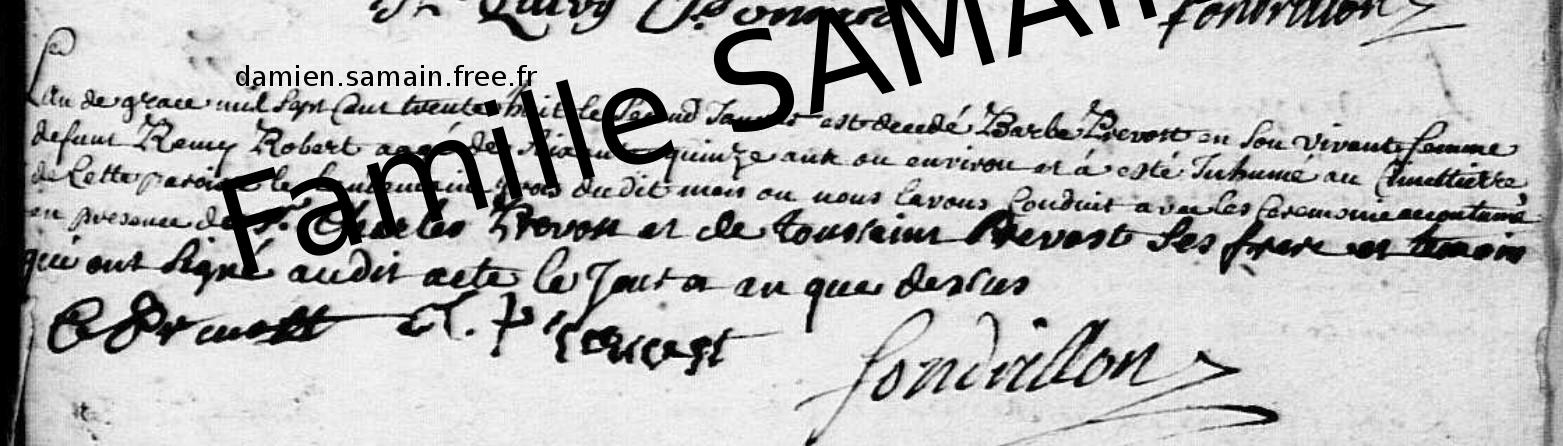 fondrillon
damien.samain.free.fr
Famille SAMAIN
Lan de grace mil sept cent trente huit le second Janvier est decedé Barbe Prevost en son vivant femme
defunt Remy Robert aagée de soixante quinze ans ou environ et a esté Inhumé au Cimettierre
de cette paroisse le lendemain trois dudit mois ou nous lavons conduit avec les Ceremonie acoutumé
en presence de Charles Prevost et de toussaint Prevost ses frere et temoin
qui ont signé audit acte le Jour et an que dessus
C Prevost T. Prevost
fondrillon